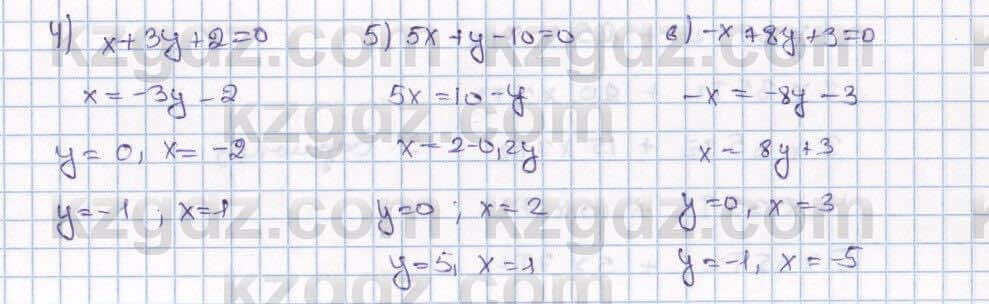 4) x+3y+2=0
x=-3y-2
y=0, x=-2
y=-1; x=1
5) 5x+y-10=0
5x=10-y
x=2-0,2y
y=0; x=2
y=5, x=1
6) -x+8y+3=0
-x=-8y-3
x=8y+3
y=0, x=3
y=-1, x=-5
kzgdz.com
kzgdz.com
kzgdz.com
kzgdz.com
kzgdz.com
kzgdz.com
kzgdz.com